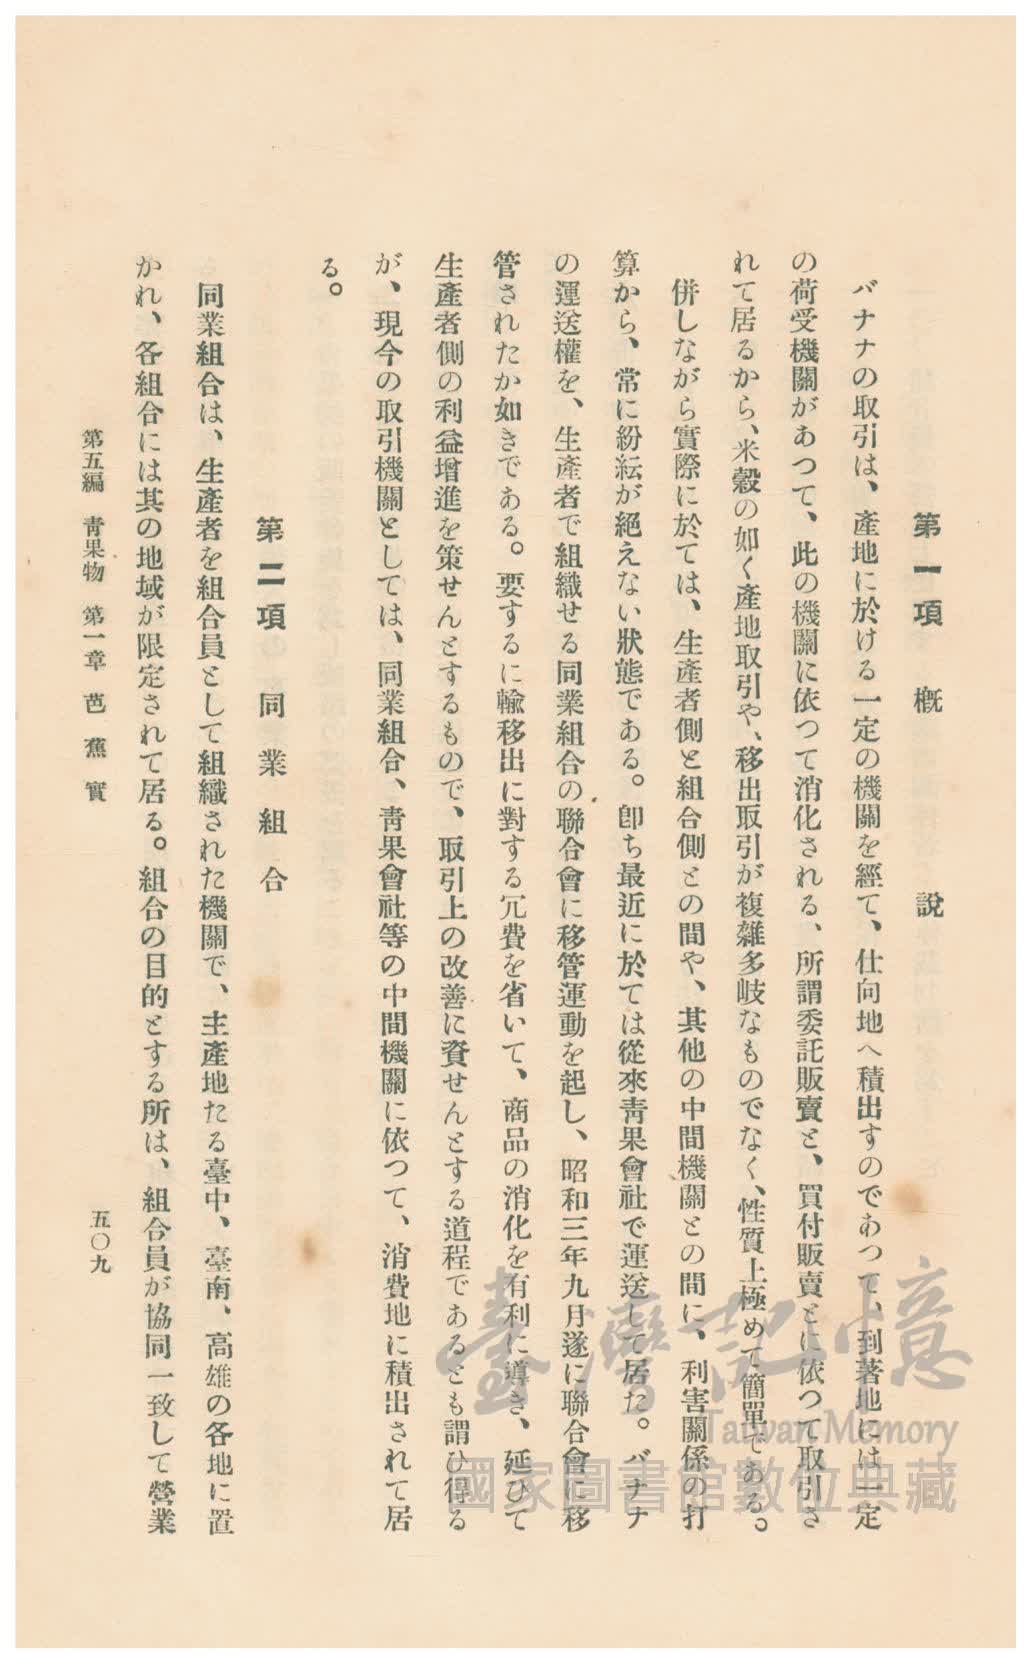 第一項　概　說
バナナの取引は、產地に於ける一定の機關を經て、仕向地へ積出すのであつて、到著地には一定
の荷受機關があつて、此の機關に依つて消化される、所謂委託販賣と、買付販賣とに依つて取引さ
れて居るから、米穀の如く產地取引や、移出取引が複雜多岐なものでなく、性質上極めて簡單である。
併しながら實際に於ては、生產者側と組合側との間や、其他の中間機關との間に、利害關係の打
算から、常に紛紜が絕えない狀態である。卽ち最近に於ては從來靑果會社で運送して居た。バナナ
の運送權を、生產者で組織せる同業組合の聯合會に移管運動を起し、昭和三年九月遂に聯合會に移
管されたか如きである。要するに輸移出に對する冗費を省いて、商品の消化を有利に導き、延ひて
生產者側の利益增進を策せんとするもので、取引上の改善に資せんとする道程であるとも謂ひ得る
が、現今の取引機關としては、同業組合、靑果會社等の中間機關に依つて、消費地に積出されて居
る。
第二項　同業組合
同業組合は、生產者を組合員として組織された機關で、主產地たる臺中、臺南、高雄の各地に置
かれ、各組合には其の地域が限定されて居る。組合の目的とする所は、組合員が協同一致して營業
第五編　靑果物　第一章　芭蕉實
五〇九
臺灣記憶
Taiwan Memory
國家圖書館數位典藏